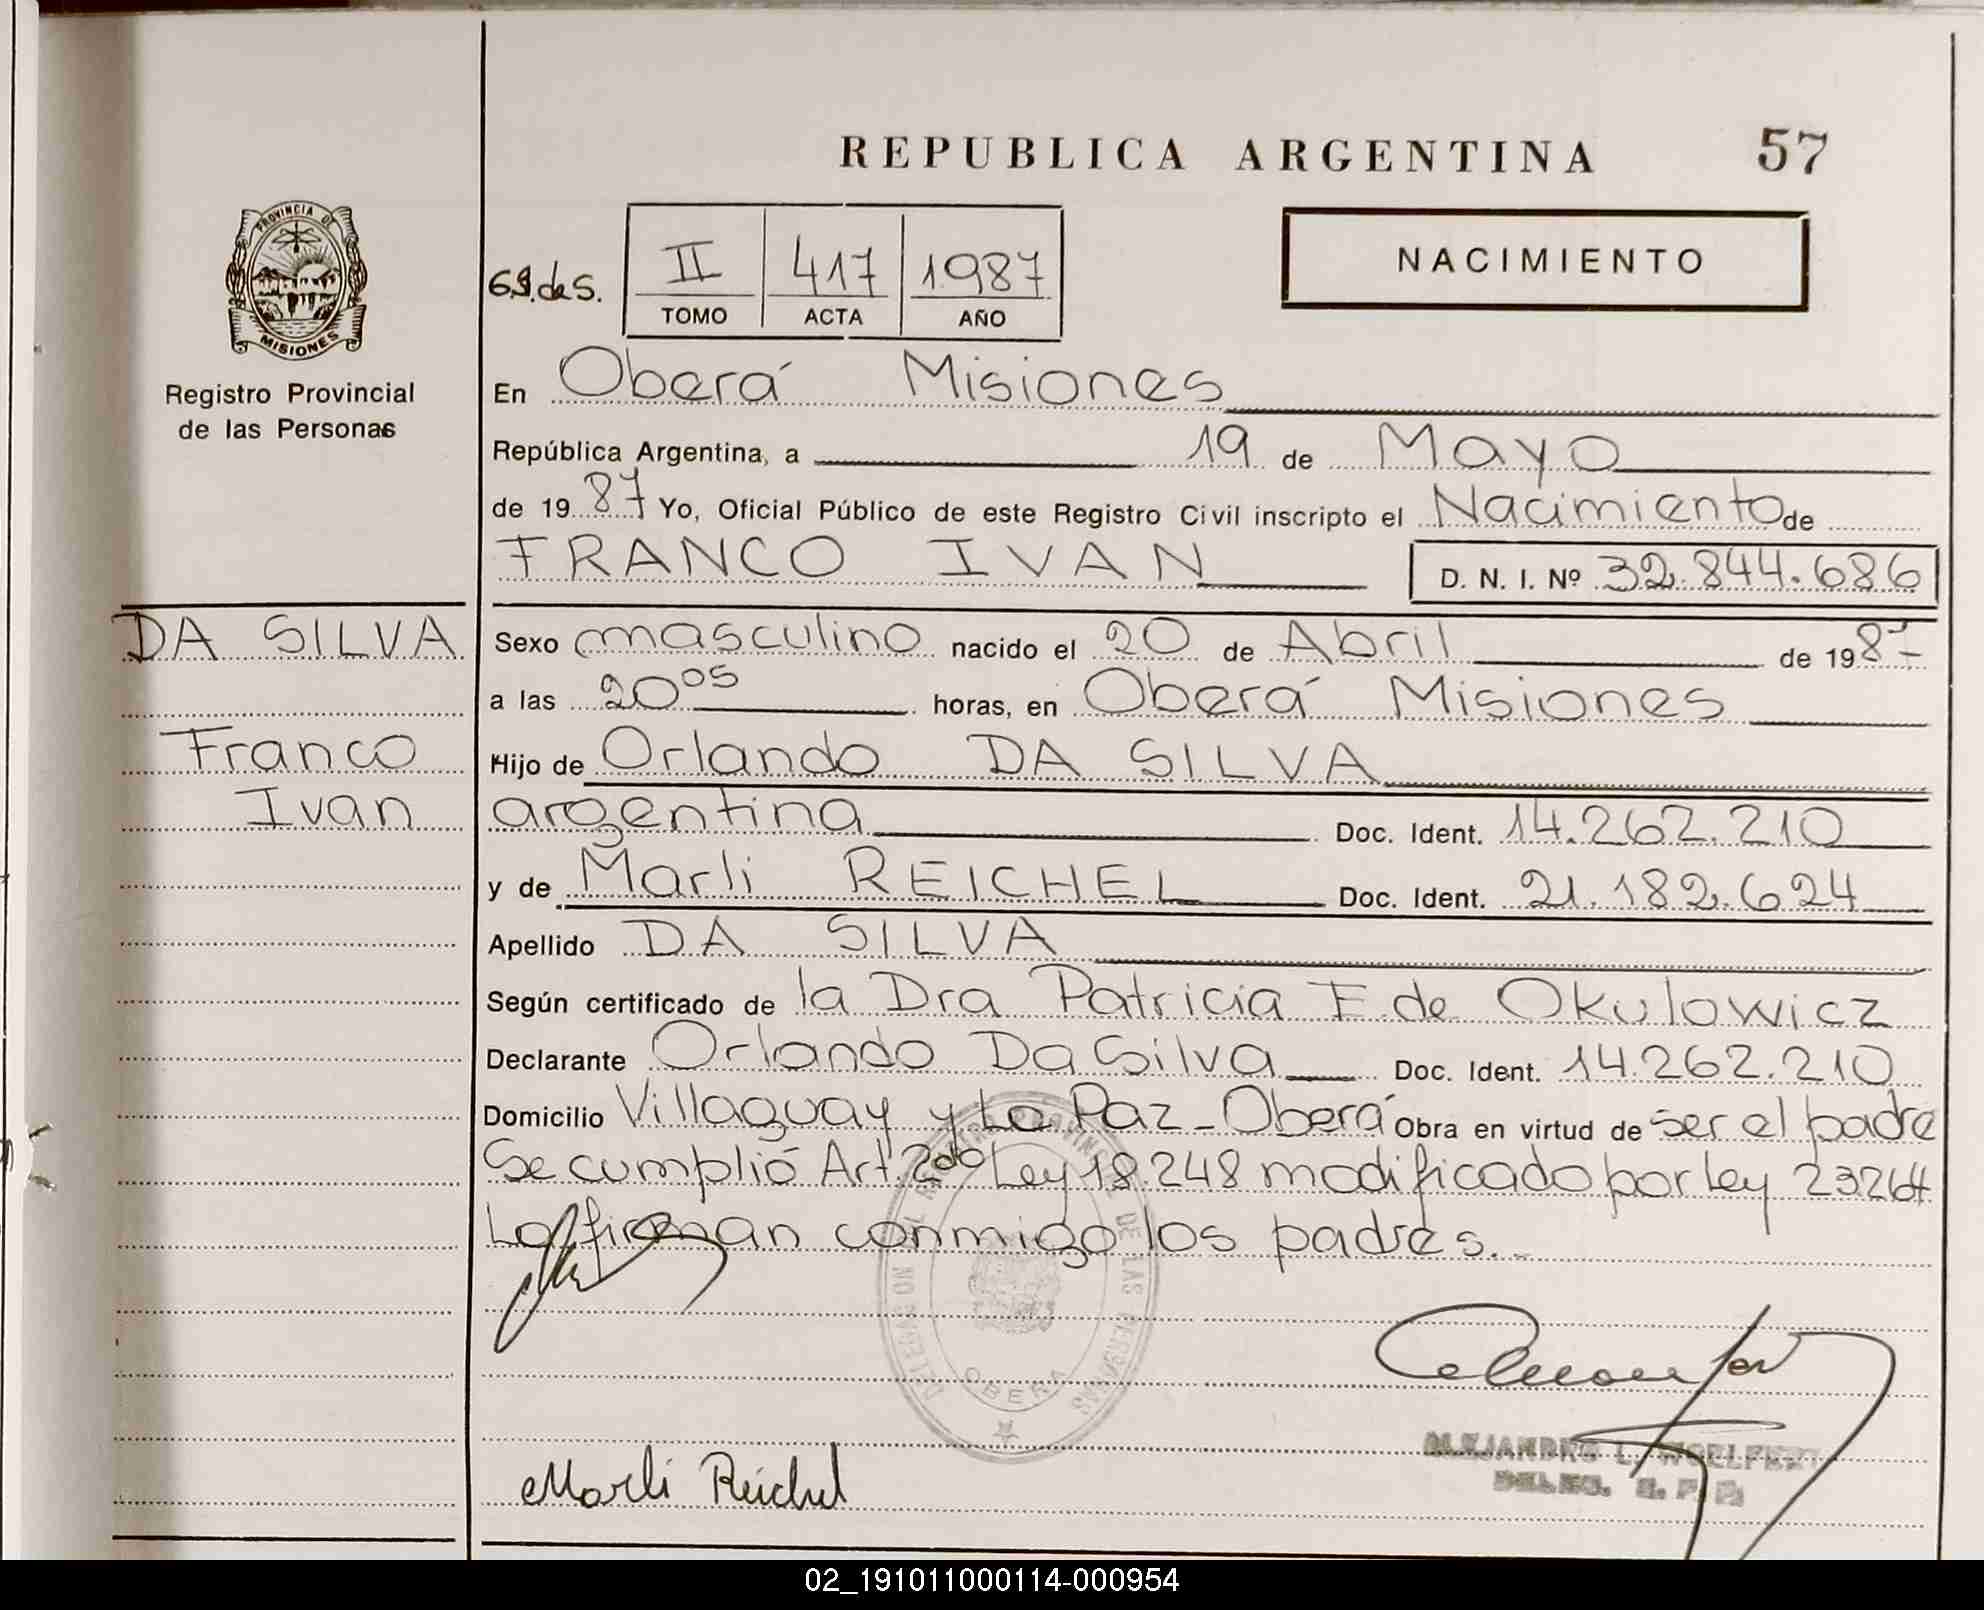 REPUBLICA ARGENTINA 57
PROVINCIA DE
MISIONES
Registro Provincial
de las Personas
NACIMIENTO
II 417 1987
TOMO ACTA AÑO
En Oberá Misiones
República Argentina, a 19 de Mayo
de 1987 Yo, Oficial Público de este Registro Civil inscripto el Nacimiento de
FRANCO IVAN D. N. I. Nº 32.844.686
DA SILVA
Franco
Ivan
Sexo masculino nacido el 20 de Abril de 1987
a las 20⁰⁵ horas, en Oberá Misiones
Hijo de Orlando DA SILVA
argentina Doc. Ident. 14.262.210
y de Marli REICHEL Doc. Ident. 21.182.624
Apellido DA SILVA
Según certificado de la Dra Patricia F. de Okulowicz
Declarante Orlando Da Silva Doc. Ident. 14.262.210
Domicilio Villaguay y La Paz - Oberá Obra en virtud de ser el padre
Se cumplió Art. 2do Ley 18.248 modificado por ley 23264
La firman conmigo los padres.
DE LAS PERSONAS
OBERA
Marli Reichel
ALEJANDRO L. WOELFERT
02_191011000114-000954